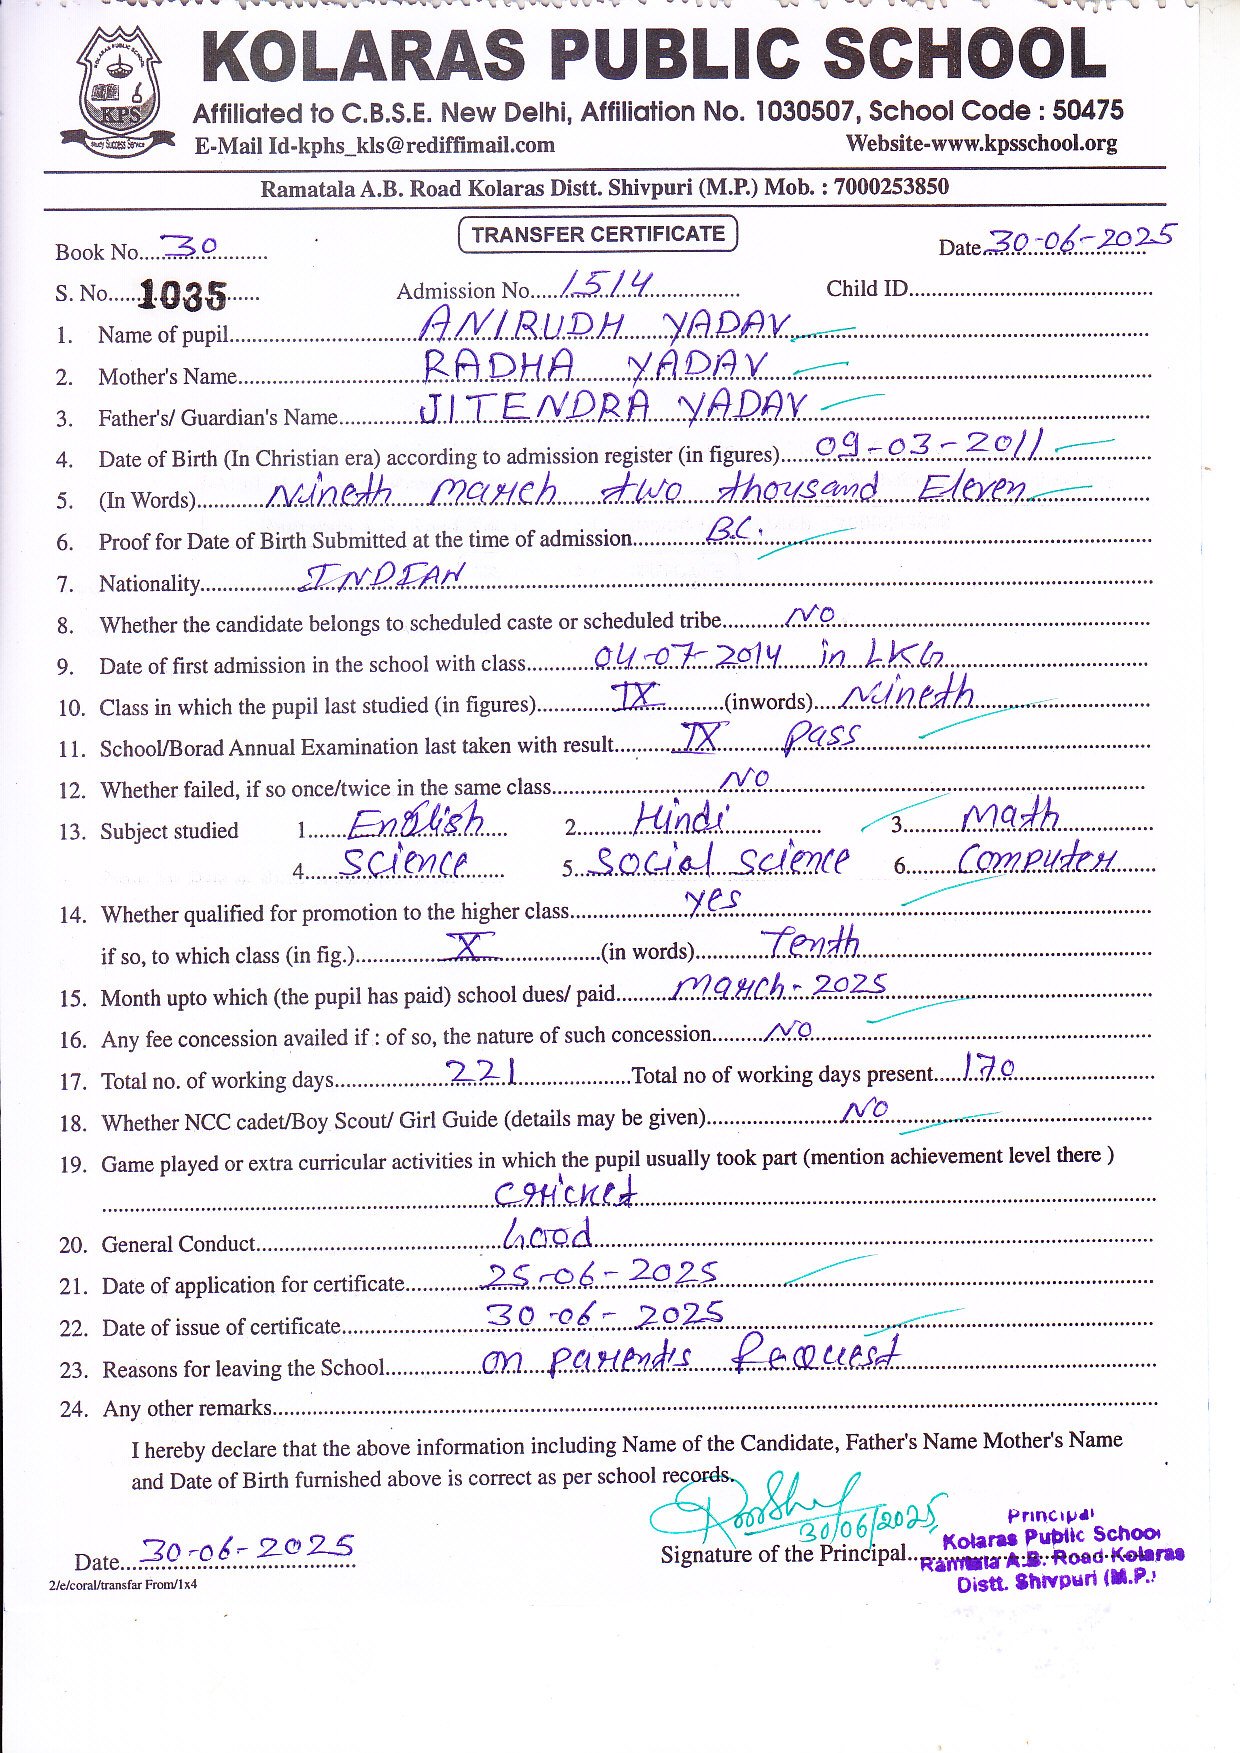 KOLARAS PUBLIC SCHOOL
Affiliated to C.B.S.E. New Delhi, Affiliation No. 1030507, School Code : 50475
E-Mail Id-kphs_kls@rediffimail.com Website-www.kpsschool.org
Ramatala A.B. Road Kolaras Distt. Shivpuri (M.P.) Mob. : 7000253850
KPS
Study Success Service
TRANSFER CERTIFICATE
Book No....30.......... Date 30-06-2025
S. No.....1035...... Admission No....1514............... Child ID..........
1. Name of pupil..........ANIRUDH YADAV..........
2. Mother's Name..........RADHA YADAV..........
3. Father's/ Guardian's Name..........JITENDRA YADAV..........
4. Date of Birth (In Christian era) according to admission register (in figures).....09-03-2011
5. (In Words)..........Nineth March two thousand Eleven..........
6. Proof for Date of Birth Submitted at the time of admission..........B.C...........
7. Nationality..........INDIAN..........
8. Whether the candidate belongs to scheduled caste or scheduled tribe..........NO..........
9. Date of first admission in the school with class..........04-07-2014 in LKG..........
10. Class in which the pupil last studied (in figures)..........IX..........(inwords)....Nineth..........
11. School/Borad Annual Examination last taken with result..........IX Pass..........
12. Whether failed, if so once/twice in the same class..........NO..........
13. Subject studied 1......English.... 2........Hindi............. 3.........Math............
4.....Science...... 5..Social Science 6........Computer.....
14. Whether qualified for promotion to the higher class..........yes..........
if so, to which class (in fig.)..........X..........(in words)..........Tenth..........
15. Month upto which (the pupil has paid) school dues/ paid.........March-2025..........
16. Any fee concession availed if : of so, the nature of such concession.........NO..........
17. Total no. of working days..........221..........Total no of working days present....170..........
18. Whether NCC cadet/Boy Scout/ Girl Guide (details may be given)..........NO..........
19. Game played or extra curricular activities in which the pupil usually took part (mention achievement level there )
..........Cricket..........
20. General Conduct..........Good..........
21. Date of application for certificate..........25-06-2025..........
22. Date of issue of certificate..........30-06-2025..........
23. Reasons for leaving the School..........on parents Request..........
24. Any other remarks..........
I hereby declare that the above information including Name of the Candidate, Father's Name Mother's Name
and Date of Birth furnished above is correct as per school records.
30/06/2025
Principal
Kolaras Public School
Date...30-06-2025 Signature of the Principal.. Ramtala A.B. Road Kolaras
2/e/coral/transfar From/1x4 Distt. Shivpuri (M.P.)